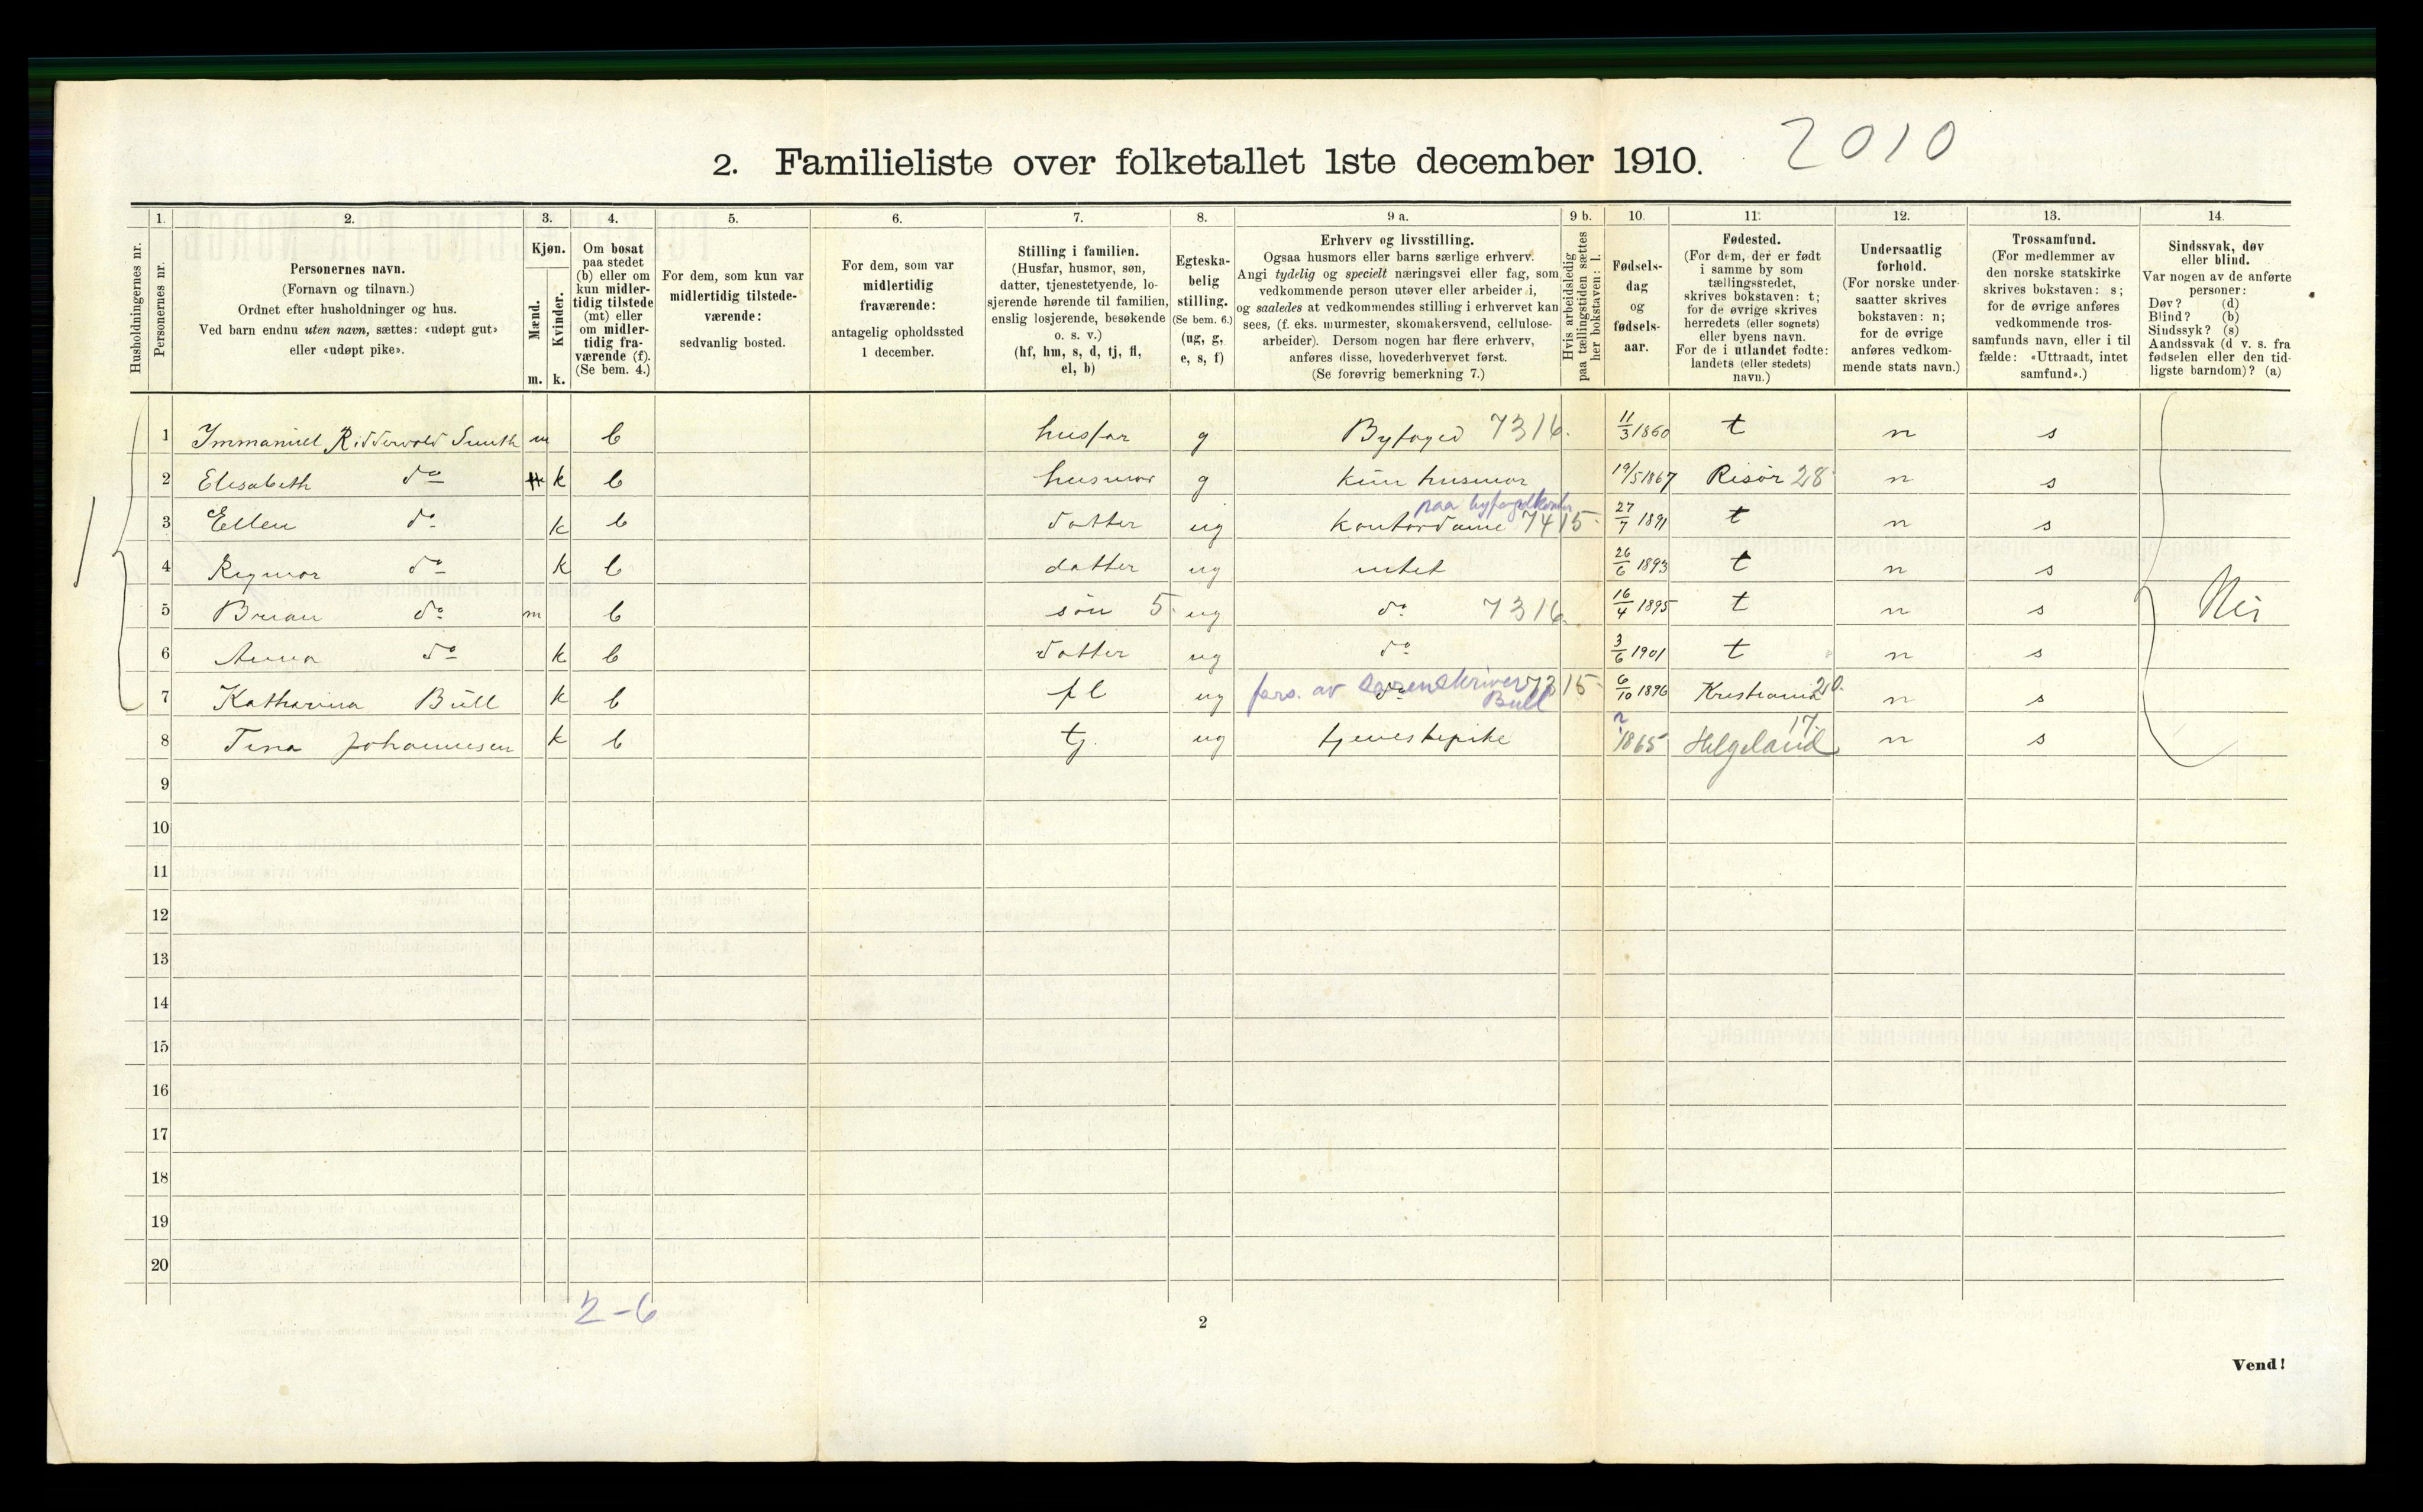 2. Familieliste over folketallet 1ste december 1910. 2010
Husholdningernes nr.
1. Personernes nr.
2. Personernes navn.
(Fornavn og tilnavn.)
Ordnet efter husholdninger og hus.
Ved barn endnu uten navn, sættes: «udøpt gut»
eller «udøpt pike».
3. Kjøn.
Mænd. m.
Kvinder. k.
4. Om bosat
paa stedet
(b) eller om
kun midler-
tidig tilstede
(mt) eller
om midler-
tidig fra-
værende (f).
(Se bem. 4.)
5. For dem, som kun var
midlertidig tilstede-
værende:
sedvanlig bosted.
6. For dem, som var
midlertidig
fraværende:
antagelig opholdssted
1 december.
7. Stilling i familien.
(Husfar, husmor, søn,
datter, tjenestetyende, lo-
sjerende hørende til familien,
enslig losjerende, besøkende
o. s. v.)
(hf, hm, s, d, tj, fl,
el, b)
8. Egteska-
belig
stilling.
(Se bem. 6.)
(ug, g,
e, s, f)
9 a. Erhverv og livsstilling.
Ogsaa husmors eller barns særlige erhverv.
Angi tydelig og specielt næringsvei eller fag, som
vedkommende person utøver eller arbeider i,
og saaledes at vedkommendes stilling i erhvervet kan
sees, (f. eks. murmester, skomakersvend, cellulose-
arbeider). Dersom nogen har flere erhverv,
anføres disse, hovederhvervet først.
(Se forøvrig bemerkning 7.)
9 b. Hvis arbeidsledig
paa tællingstiden sættes
her bokstaven: l.
10. Fødsels-
dag
og
fødsels-
aar.
11. Fødested.
(For dem, der er født
i samme by som
tællingsstedet,
skrives bokstaven: t;
for de øvrige skrives
herredets (eller sognets)
eller byens navn.
For de i utlandet fødte:
landets (eller stedets)
navn.)
12. Undersaatlig
forhold.
(For norske under-
saatter skrives
bokstaven: n;
for de øvrige
anføres vedkom-
mende stats navn.)
13. Trossamfund.
(For medlemmer av
den norske statskirke
skrives bokstaven: s;
for de øvrige anføres
vedkommende tros-
samfunds navn, eller i til
fælde: «Uttraadt, intet
samfund».)
14. Sindssvak, døv
eller blind.
Var nogen av de anførte
personer:
Døv? (d)
Blind? (b)
Sindssyk? (s)
Aandssvak (d v. s. fra
fødselen eller den tid-
ligste barndom)? (a)
1 Immanuel Ridderwold Smith m b husfar g Byfoged 7316. 11/3 1860 t n s
2 Elisabeth do k b husmor g kun husmor 19/5 1867 Risör 28 n s
paa byfogdkontor
3 Ellen do k b datter ug kontordame 7415. 27/7 1891 t n s
4 Rigmor do k b datter ug intet 26/6 1893 t n s
5 do m b sön 5. ug do 7316. 16/4 1895 t n s Nei
6 Anna do k b datter ug do 3/6 1901 t n s
7 Katharina Büll k b fl ug do fors. av Sorenskriver Bull 7315. 6/10 1896 Kristiania 20. n s
8 Tina Johannesen k b tj. ug tjenestepike 1865 Helgeland 17. n s
9
10
11
12
13
14
15
16
17
18
19
20
2-6
2
Vend!